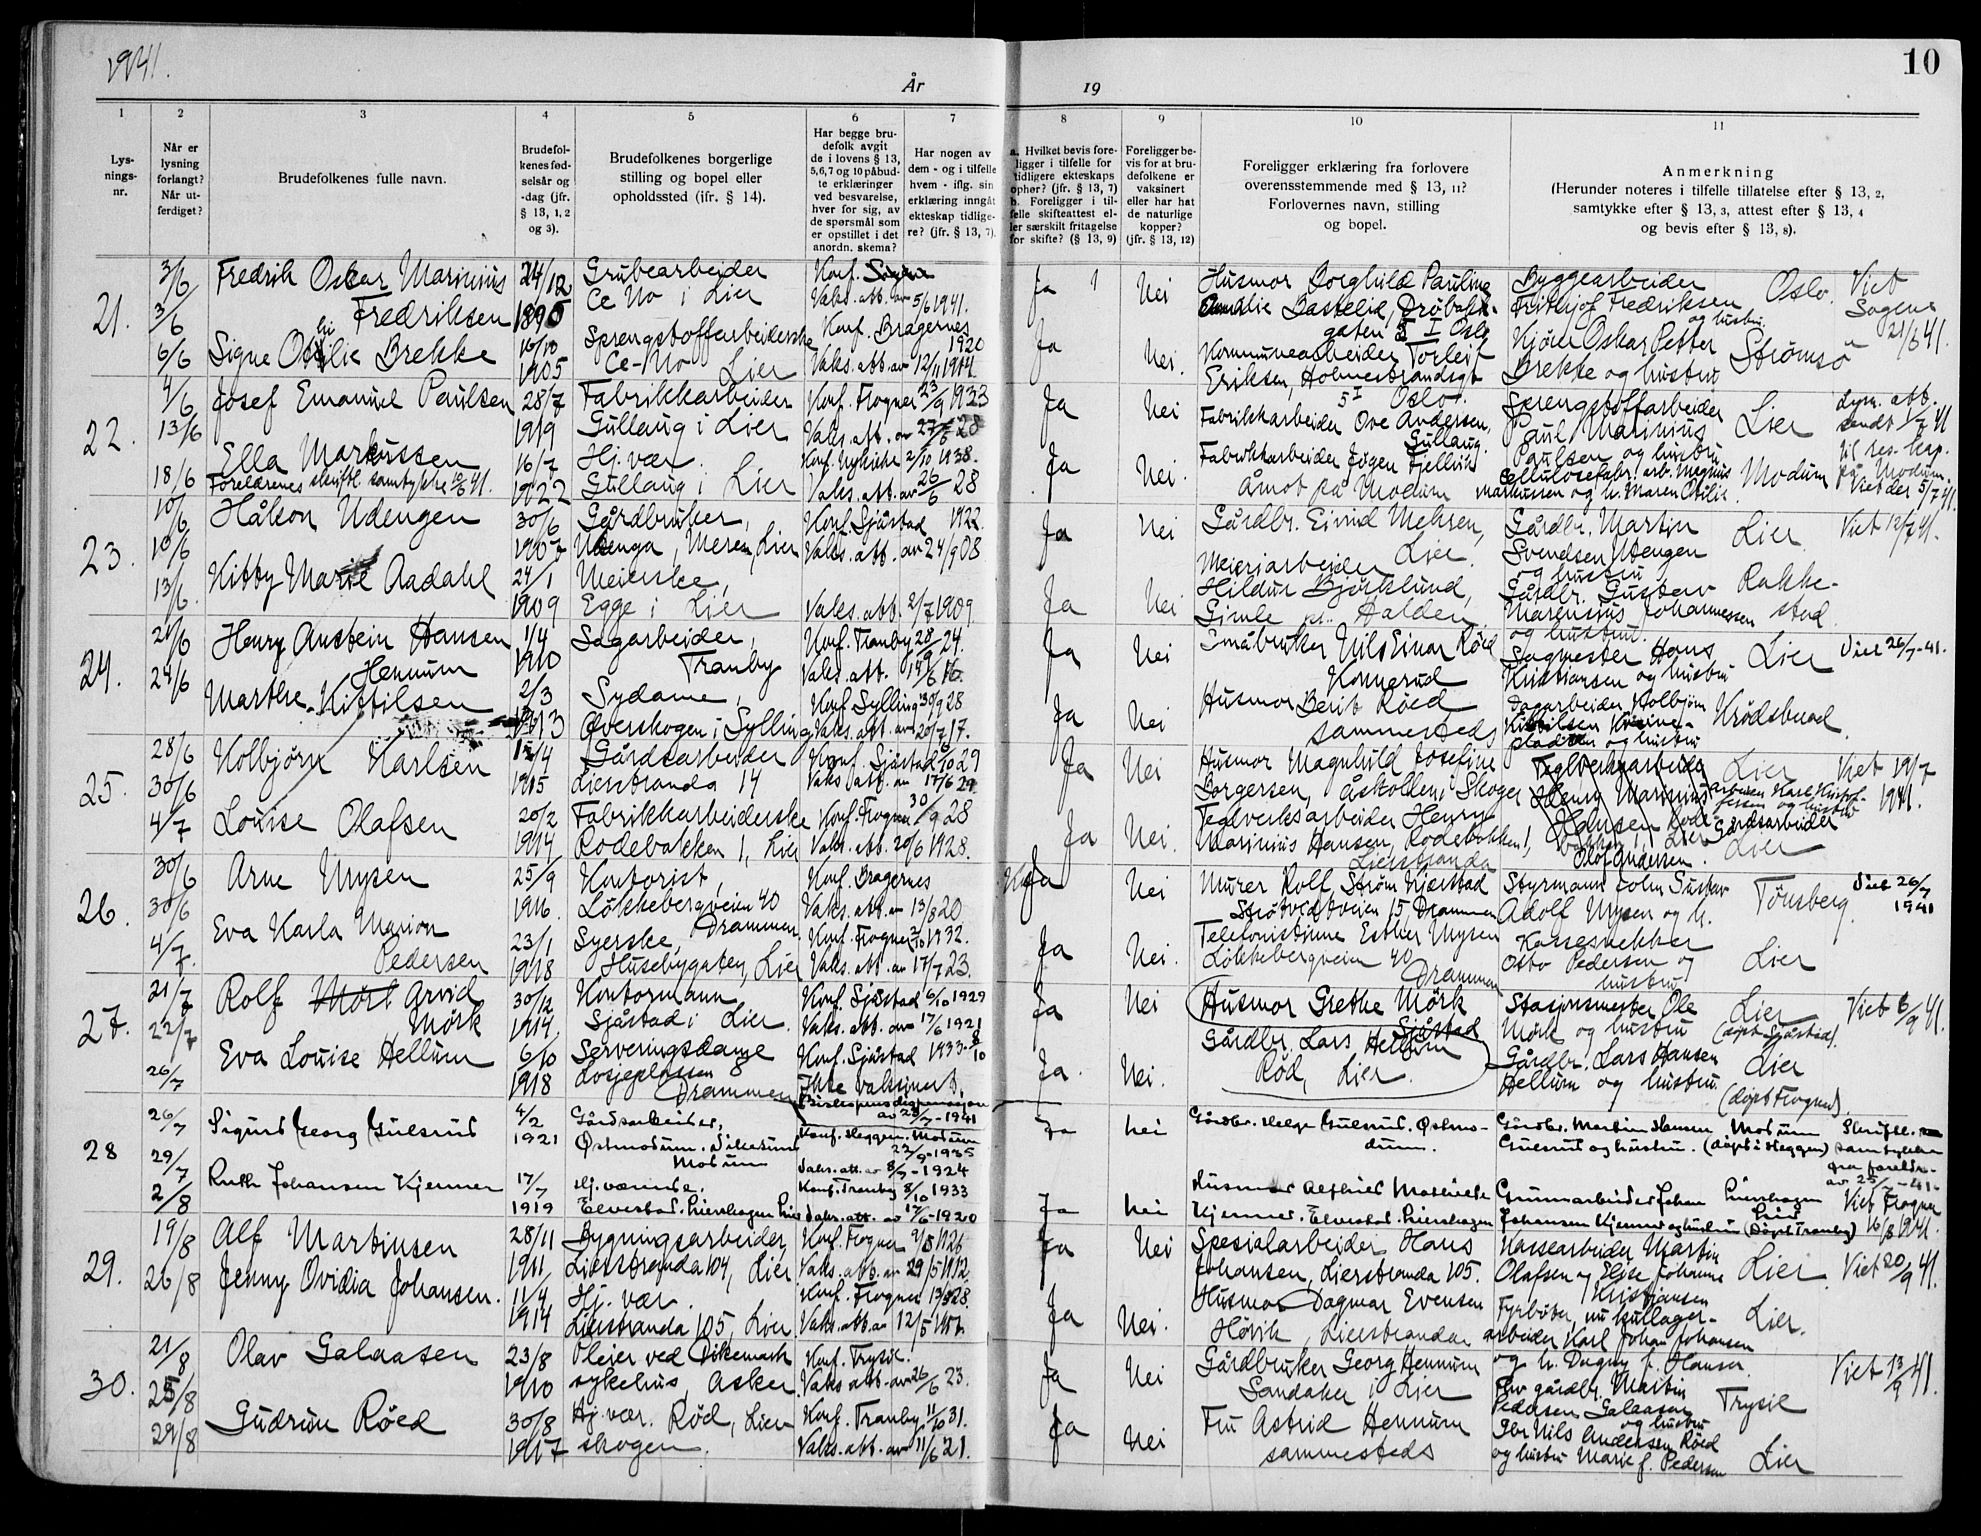 1941.
År
19
10
1
2
3
4
5
6
7
8
9
10
11
Lys-
nings-
nr.
Når er
lysning
forlangt?
Når ut-
ferdiget?
Brudefolkenes fulle navn.
Brudefol-
kenes fød-
selsår og
-dag (jfr.
§ 13, 1, 2
og 3).
Brudefolkenes borgerlige
stilling og bopel eller
opholdssted (jfr. § 14).
Har begge bru-
defolk avgit
de i lovens § 13,
5,6,7 og 10 påbud-
te erklæringer
ved besvarelse,
hver for sig, av
de spørsmål som
er opstillet i det
anordn. skema?
Har nogen av
dem - og i tilfelle
hvem - iflg. sin
erklæring inngåt
ekteskap tidlige-
re? (jfr. § 13, 7).
a. Hvilket bevis fore-
ligger i tilfelle for
tidligere ekteskaps
ophør? (jfr. § 13, 7)
b. Foreligger i til-
felle skifteattest el-
ler særskilt fritagelse
for skifte? (§ 13, 9)
Foreligger be-
vis for at bru-
defolkene er
vaksinert
eller har hat
de naturlige
kopper?
(jfr. § 13, 12)
Foreligger erklæring fra forlovere
overensstemmende med § 13, 11?
Forlovernes navn, stilling
og bopel.
Anmerkning
(Herunder noteres i tilfelle tillatelse efter § 13, 2,
samtykke efter § 13, 3, attest efter § 13, 4
og bevis efter § 13, 8).
21.
3/6
3/6
6/6
Fredrik Oskar Marinius
Fredriksen
Signe Otilie Brekke
24/12
1895
16/10
1905
Grubearbeider
Ce No i Lier
Sprengstoffarbeiderske
Ce-No Lier
Konf. Sogne
Vaks. att. av 5/6 1941.
Konf. Bragernes
1920
Vaks. att. av 12/11
Ja
Nei
Ja
Nei.
Husmor Borghild Pauline
Drøbak-
gaten 5 I Oslo
Kommunearbeider Torleif
Eriksen, Holmestrandsgt
5 I Oslo.
Byggearbeider
Frithjof Fredriksen
og hustru.
Oslo.
Kjører Oskar Petter
Brekke og hustru
Strømsø
Viet
Sogene
21/6 41.
22.
4/6
13/6
18/6
Josef Emanuel Paulsen
Ella Markussen
Foreldrenes skriftl. samtykke 10/6 41.
28/7
1919
16/7
1922
Fabrikkarbeider
Gullaug i Lier
Hj. vær.
Gullaug i Lier
Konf. Frogner 23/9 1933
Vaks. att. av 27/6 28
Konf. Nykirke 2/10 1938.
Vaks. att. av 26/6 28
Ja
Nei
Ja
Nei.
Fabrikkarbeider Ove Andersen,
Gullaug.
Fabrikkarbeider Jørgen Fjellvik
Åmot på Modum
Sprengstoffarbeider
Paul Marinius
Paulsen og hustru
Lier
Cellulosefabr. arb. Magnus
Markussen og h. Maren Otilie.
Modum
Lysn. att.
sendt 1/7 41
til res. kap.
på Modum.
Viet der 5/7 41.
23.
10/6
10/6
13/6.
Håkon Udengen
Kitty Marie Aadahl
30/6
1907
24/1
1909
Gårdbruker,
Udenga, Meren, Lier
Meierske,
Egge i Lier
Konf. Sjåstad 1922.
Vaks. att. av 24/9 08
Vaks. att. 2/7 1909
Ja
Nei
Ja
Nei
Gårdbr. Eivind Mehren,
Lier.
Meieriarbeider
Hildur Bjørklund,
Gimle pr. Halden.
Gårdbr. Martin
Svendsen Utengen
og hustru
Lier
Gårdbr. Gustav
Marensius Johannessen
og hustru.
Rakke-
stad.
Viet 12/7 41.
24.
21/6
24/6
Henry Anstein Hansen
Hennum
Marthe Kittilsen
1/4
1910
2/3
1913
Sagarbeider,
Tranby
Sydame,
Øverskogen i Sylling
Konf. Tranby 28/9 24.
Vaks. att. 14/6 16.
Konf. Sylling 30/9 28
Vaks. att. av 20/6 17.
Ja
Nei
Ja
Nei
Småbruker Nils Einar Røed
Konnerud
Husmor Berit Røed
sammesteds
Sagmester Hans
Kristiansen og hustru
Lier
Dagarbeider Kolbjørn
Kittilsen
og hustru
Krødsherad
Viet 26/7-41.
25.
28/6
30/6
4/7
Kolbjørn Karlsen
Louise Olafsen
1915
20/2
1914
Gårdsarbeider
Lierstranda 14
Fabrikkarbeiderske
Rodebakken 1, Lier
Konf. Sjåstad 29
Vaks att. av 17/6 29
Konf. Frogner 30/9 28
Vaks. att. 20/6 1928.
Ja
Nei
Ja
Nei.
Husmor Magnhild Josefine
Borgersen, Åskollen, Skoger
Teglverksarbeider Henry
Marinius Hansen, Rodebakken 1,
Lierstranda
Teglverksarbeider
Henry Marinius
Hansen
Lier
Gårdsarbeider
Olof Andersen.
Lier
Viet 19/7
1941.
26.
30/6
30/6
4/7.
Arne Mysen
Eva Karla Marion
Pedersen
25/9
1916.
23/1
1918
Kontorist,
Løkkebergveien 40
Drammen.
Syerske,
Husebygaten, Lier
Konf. Bragernes
Vaks. att. av 13/8 20
Konf. Frogner 2/10 1932.
Vaks. att. av 17/7 23.
Ja
Nei
Ja
Nei.
Murer Rolf Strøm Kjærstad
Strøtvedtveien 15, Drammen
Telefonistinne Esther Mysen
Løkkebergveien 40
Drammen
Styrmann John Gustav
Adolf Mysen og h.
Tønsberg.
Kassesnekker
Otto Pedersen og
hustru
Lier
Viet 26/7
1941
27.
21/7
22/7
26/7
Rolf Arvid
Mørk
Eva Louise Hellum
30/12
1914.
6/10
1918
Kontormann
Sjåstad i Lier.
Serveringsdame
Losjeplassen
Drammen
Konf. Sjåstad 6/10 1929
Vaks. att. av 17/6 1921
Konf. Sjåstad 1933 8/10
Ikke vaksinert.
Bispens dispensasjon
av 23/7-1941
Ja
Nei
Ja.
Nei.
Husmor Grethe Mørk
Sjåstad
Gårdbr. Lars Hellum
Rød, Lier.
Stasjonsmester Ole
Mørk og hustru
Lier
(døpt Sjåstad).
Gårdbr. Lars Hansen
Hellum og hustru
Lier
(døpt Frogner).
Viet 6/9 41.
28
26/7
29/7
2/8
Sigurd Georg Gulsrud
Ruth Johansen Kjenner
4/2
1921
17/7
1919
Gårdsarbeider,
Østmodum, Vikersund
Modum
Hj. værende.
Elvestad. Lierskogen Lier
Konf. Heggen. Modum
22/9-1935
Vaks. att. av 8/7-1924
Konf. Tranby 8/10 1933
Vaks. att. av 17/6-1920
Ja
Nei
Ja
Nei
Gårdbr. Helge Gulsrud. Østmo-
dum.
Husmor Mathilde
Kjenner. Elvestad. Lierskogen
Gårdbr. Martin Hansen
Gulsrud og hustru. (døpt i Heggen)
Modum
Johan
Johansen Kjenner og hustru (Døpt Tranby)
Lierskogen
Lier
Skriftl.
samtykke
fra foreldr.
av 25/7-41-
Viet Frogner
16/8 1941.
29.
19/8
26/8
Alf Martinsen
Jenny Ovidia Johansen.
28/11
1911
11/4
1914
Bygningsarbeider
Lierstranda 104, Lier
Hj. vær.
Lierstranda 105, Lier
Konf. Frogner
Vaks. att. av 29/5 1912.
Konf. Frogner 28.
Vaks. att. av 12/5
Ja
Nei
Ja
Nei.
Spesialarbeider Hans
Johansen, Lierstranda 105.
Husmor Dagmar Evensen
Høvik, Lierstranda
Kassearbeider Martin
Olafsen og Elise Johanne
Kristiansen
Lier
Fyrbøter, nu kullager-
arbeider Karl Johan Johansen
og h. Dagny f. Hansen
Lier.
Viet 20/9 41.
30.
21/8
25/8
29/8
Olav Galaasen
Gudrun Røed
23/8
1910
30/8
1917
Pleier ved Dikemark
sykehus, Asker
Hj. vær. Rød, Lier-
skogen.
Konf. Trysil.
Vaks att. av 26/6 23.
Konf. Tranby 11/10 31.
Vaks. att. av 11/6 21.
Ja
Nei
Ja
Nei
Gårdbruker Georg Hennum
Sandaker i Lier
Fru Astrid Hennum
sammesteds
gårdbr. Martin
Pedersen Galaasen
og hustru
Trysil
Nils Andersen Røed
og hustru Marie f. Pedersen
Lier
Viet 13/9 41.